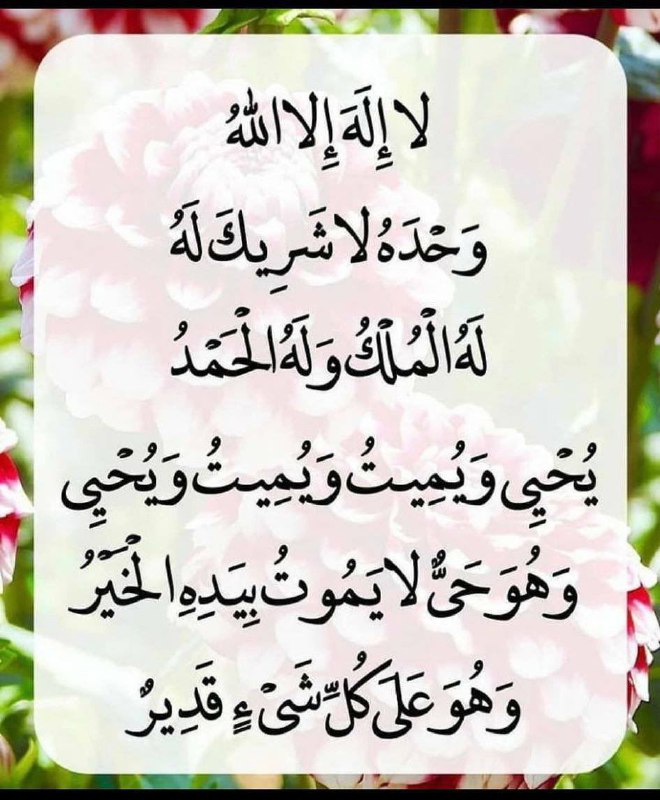 لا إِلَهَ إِلا اللهُ
وَحْدَهُ لا شَرِيكَ لَهُ
لَهُ الْمُلْكُ وَلَهُ الْحَمْدُ
يُحْيِي وَيُمِيتُ وَيُمِيتُ وَيُحْيِي
وَهُوَ حَيٌّ لا يَمُوتُ بِيَدِهِ الْخَيْرُ
وَهُوَ عَلَى كُلِّ شَيْءٍ قَدِيرٌ